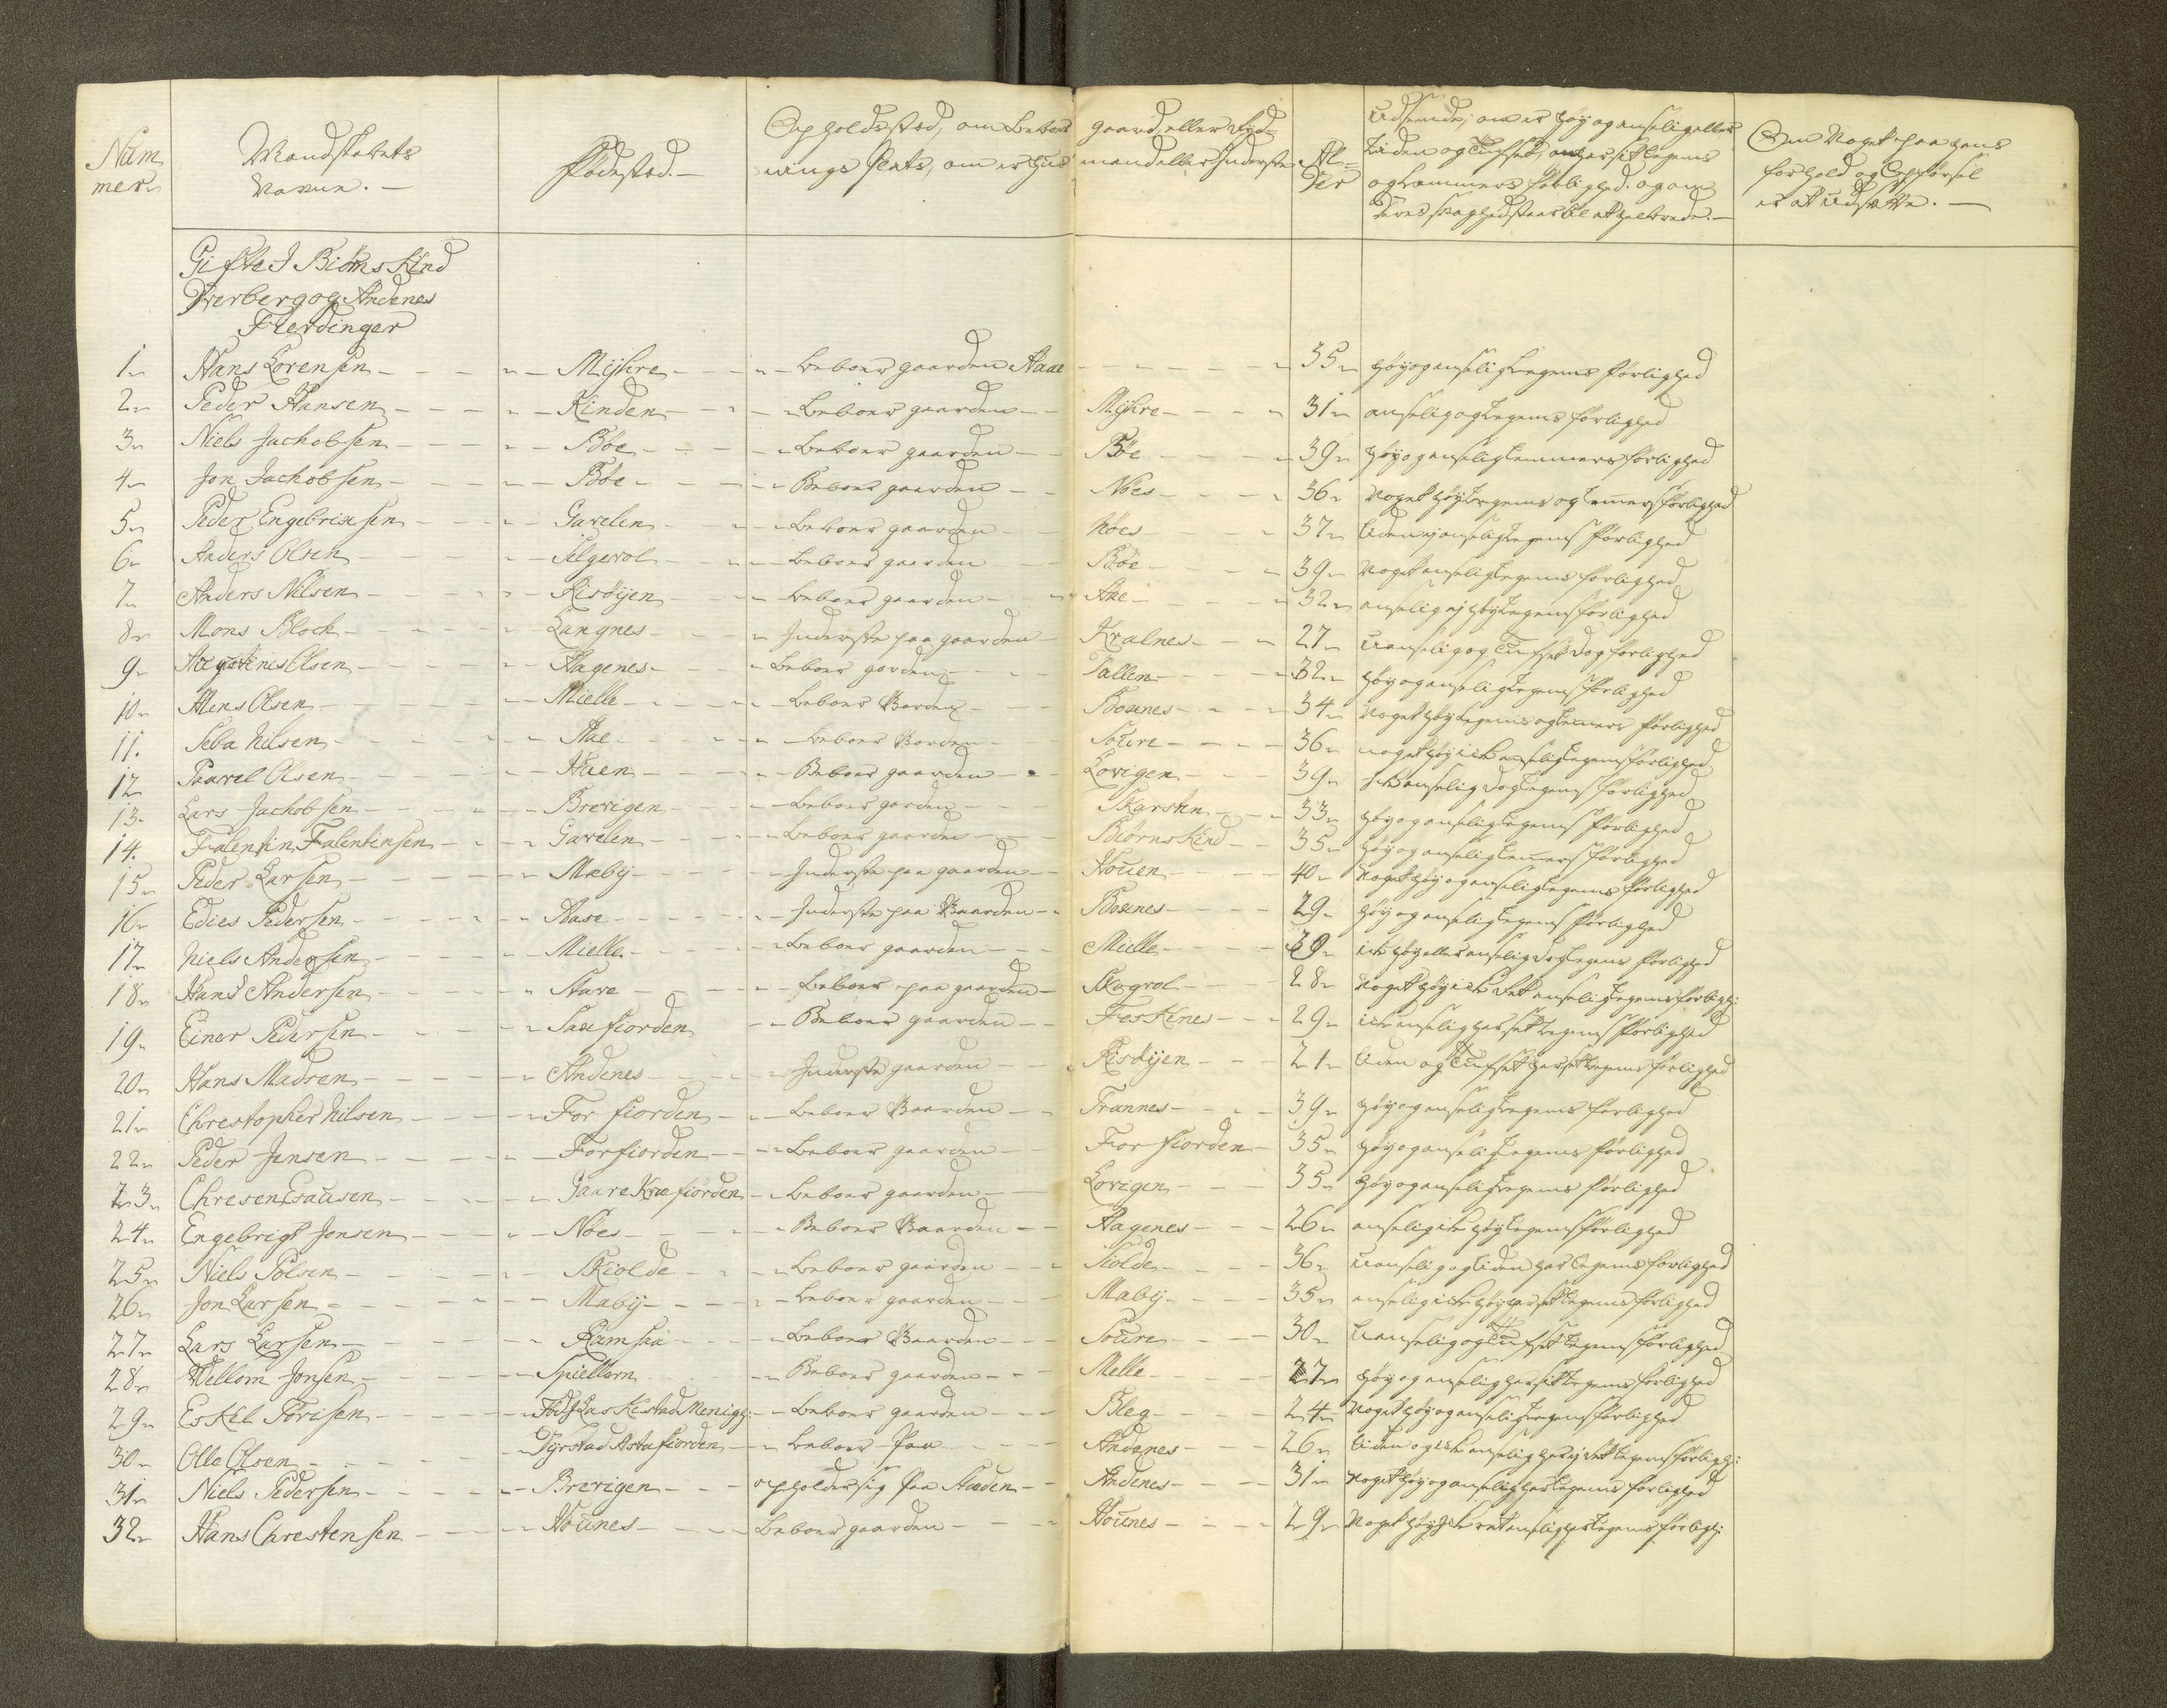 Num
mer
Mandskabets
Navne. —
Fødested. —
Opholdssted, om beboer gaard, eller Ryd-
nings Plats, om er Huus mand eller Inderste
Al-
der
Udseende, om er høy og anselig eller
Liden og Tufset, om har sit Legems
og Lemmers førlighed og om
Om Noget paa hans
forhold og Opførsel
er at Udsætte. —
Gifte I Biørnskind
Dverberg og Andenes
Fierdinger
1. Hans Lorensen — Myhre — beboer gaarden Haae — 35 høy og anselig Legems førlighed
2. Peder Hansen — Kinden — beboer gaarden — Myhre — 31 anselig og Legems førlighed
3. Niels Jachobsen — Bøe — beboer gaarden — Bøe — 39 høy og anselig Lemmers førlighed
4. Jon Jachobsen — Bøe — Beboer gaarden — Nöes — 36 Noget høy Legems og Lemers førlighed
5. Peder Engebrixsen — Gavelen — beboer gaarden — Nöes — 37 liden ej anselig Legems førlighed
6. Anders Olsen — Selgevol — beboer gaarden — Bøe — 39 Noget anselig Legems førlighed
7. Anders Nilsen — Risöyen — beboer gaarden — Aae — 32 anselig ej høy Legems førlighed
8. Mons Block — Langnes — Inderste paa gaarden — Kralnes — 27 Uanselig og Tufset dog førlighed
9. Augustinus Olsen — Hagenes — beboer gorden — Tallen — 32 høy og anselig Legems førlighed
10. Mens Olsen — Mielle — beboer Gorden — Boxenes — 34 Noget høy Legems og Lemers førlighed
11. Peba Nilsen — Aae — beboer Gorden — Soure — 36 noget høy icke anselig Legems førlighed
12. Paavel Olsen — Haen — Beboer gaarden — Lovigen — 39 anselig dog Legems førlighed
13. Lars Jachobsen — Brevigen — beboer gorden — Skarshn — 33 høy og anselig Legems førlighed
14. Falentin Falentinsen — Gavelen — beboer gaarden — Biørnskind — 35 høy og anselig Lemers førlighed
15. Peder Larsen — Mæby — Inderste paa gaarden — Houen — 40 Noget høy og anselig Legems førlighed
16. Edies Pedersen — Aase — Inderste paa Gaarden — Boxenes — 29 høy og anselig Legems førlighed
17. Niels Andersen — Mielle — beboer gaarden — Mielle — 39 icke høy eller anselig dog Legems førlighed
18. Hans Andersen — Stave — beboer paa gaarden — Skogvol — 28 Noget høy icke Ret anselig Legems førligh:
19. Einer Pedersen — Saxfiorden — Beboer gaarden — Feskenes — 29 icke anselig har sit Legems førlighed
20. Hans Madsen — Andenes — Inderste gaarden — Risöyen — 21 liden og Tufset har sit Legems førlighed
21. Chrestopher Nilsen — Forfiorden — beboer Gaarden — Trannes — 39 høy og anselig Legems førlighed
22. Peder Jensen — Forfiorden — beboer gaarden — Forfiorden — 35 høy og anselig Legems førlighed
23. Chresen Esausen — Gaarekræfiorden — beboer gaarden — Lovigen — 35 høy og anselig Legems førlighed
24. Engebrigt Jonsen — Nöes — Beboer Gaarden — Aagenes — 26 anselig icke høy Legems førlighed
25. Niels Polsen — Skiolde — beboer gaarden — Kiolde — 36 Uanselig og liden har Legems førlighed
26. Jon Larsen — Mæby — beboer gaarden — Mæby — 35 anselig icke høy har sit Legems førlighed
27. Lars Larsen — Ramsaa — beboer Gaarden — Soure — 30 Uanselig og Tufset Legems førlighed
28. Wellom Jonsen — Spiellom — Beboer gaarden — Melle — 27 høy og anselig har sit Legems førlighed
29. Eskel Torisen — Menigh: — beboer gaarden — Bleg — 24 Noget høy og anselig Legems førlighed
30. Olle Olsen — Tyrstad Astafiorden — beboer paa — Andenes — 26 liden og icke anselig har ej Ret Legems førligh:
31. Niels Pedersen — Brevigen — opholder sig paa Stæden — Andenes — 31 Noget høy og anselig har Legems førlighed
32. Hans Chrestensen — Hounes — Beboer gaarden — Hounes — 29 Noget høy icke ret anselig har Legems førligh: